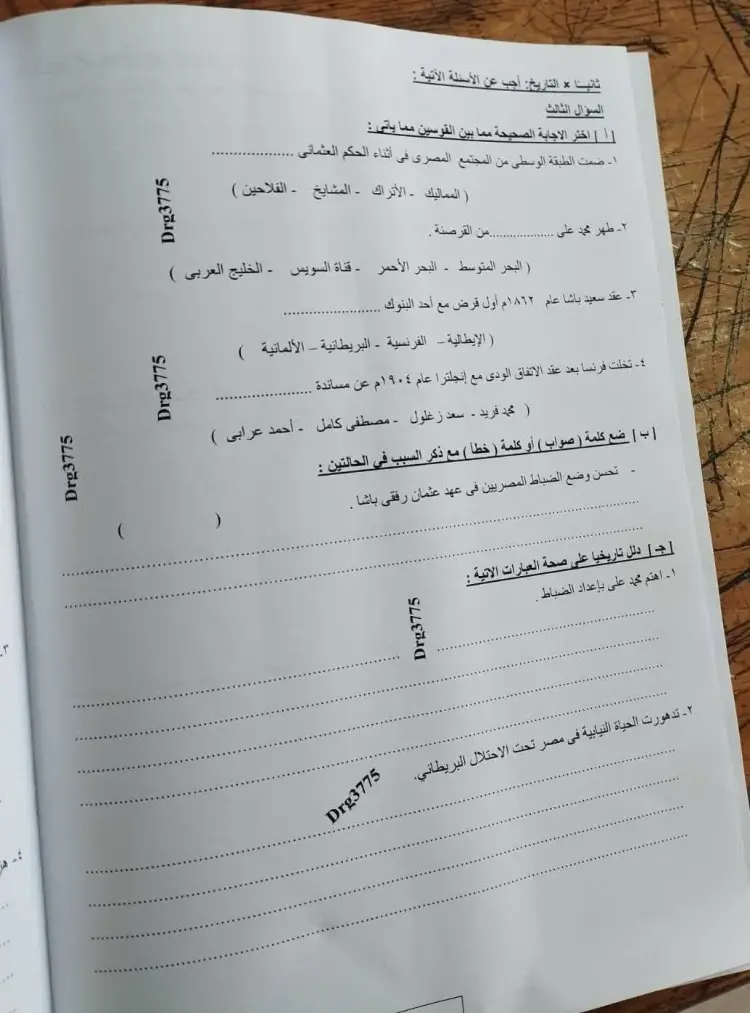 ثانيـًا × التاريخ: أجب عن الأسئلة الآتية :
السؤال الثالث
[ أ ] اختر الاجابة الصحيحة مما بين القوسين مما يأتى :
١- ضمت الطبقة الوسطى من المجتمع المصرى فى أثناء الحكم العثمانى ...................
( المماليك - الأتراك - المشايخ - الفلاحين )
Drg3775
٢- طهر محمد على .................من القرصنة .
( البحر المتوسط - البحر الأحمر - قناة السويس - الخليج العربى )
٣- عقد سعيد باشا عام ١٨٦٢م أول قرض مع أحد البنوك ......................
( الإيطالية – الفرنسية - البريطانية – الألمانية )
Drg3775
٤- تخلت فرنسا بعد عقد الاتفاق الودى مع إنجلترا عام ١٩٠٤م عن مساندة ......................
( محمد فريد - سعد زغلول - مصطفى كامل - أحمد عرابى )
Drg3775
[ ب ] ضع كلمة ( صواب ) أو كلمة ( خطأ ) مع ذكر السبب في الحالتين :
- تحسن وضع الضباط المصريين فى عهد عثمان رفقى باشا . ( )
[ جـ ] دلل تاريخيا على صحة العبارات الاتية :
١- اهتم محمد على بإعداد الضباط .
Drg3775
٢- تدهورت الحياة النيابية فى مصر تحت الاحتلال البريطاني.
Drg3775
٣-